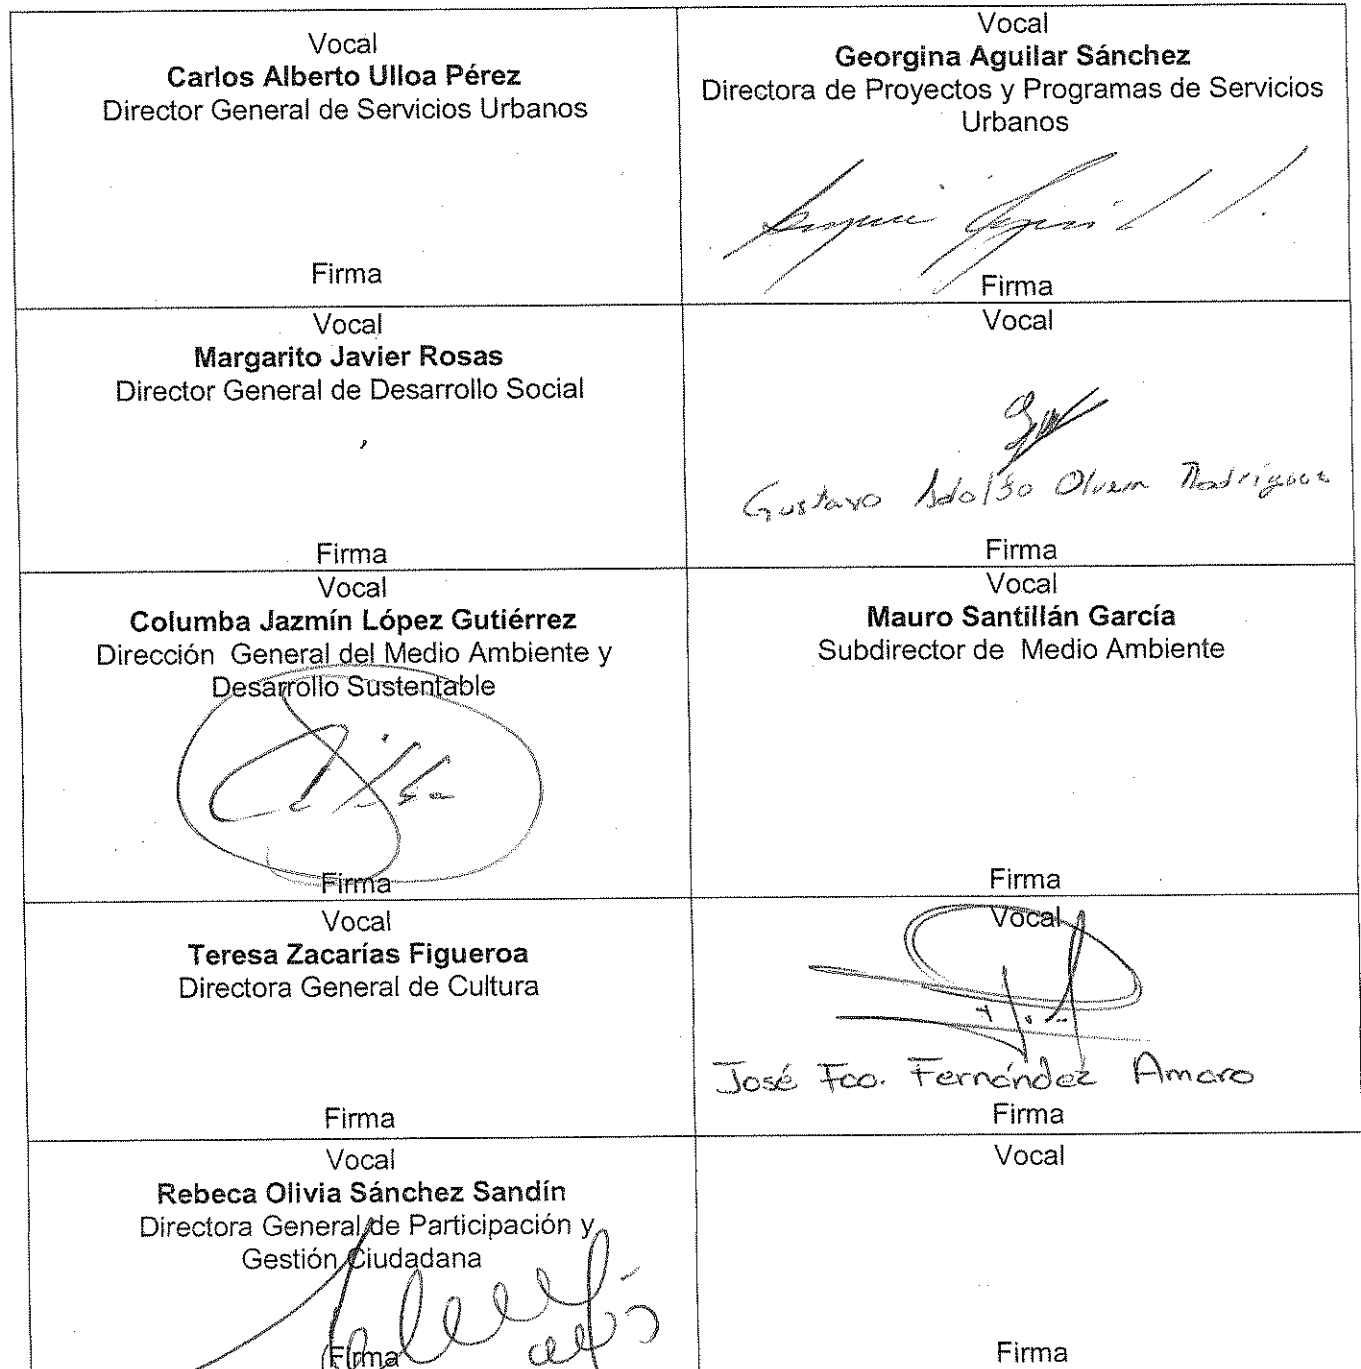 Vocal
Carlos Alberto Ulloa Pérez
Director General de Servicios Urbanos
Firma
Vocal
Georgina Aguilar Sánchez
Directora de Proyectos y Programas de Servicios
Urbanos
Firma
Vocal
Margarito Javier Rosas
Director General de Desarrollo Social
Firma
Vocal
Gustavo Adolfo Olvera Rodríguez
Firma
Vocal
Columba Jazmín López Gutiérrez
Dirección General del Medio Ambiente y
Desarrollo Sustentable
Firma
Vocal
Mauro Santillán García
Subdirector de Medio Ambiente
Firma
Vocal
Teresa Zacarías Figueroa
Directora General de Cultura
Firma
Vocal
José Fco. Fernández Amaro
Firma
Vocal
Rebeca Olivia Sánchez Sandín
Directora General de Participación y
Gestión Ciudadana
Firma
Vocal
Firma